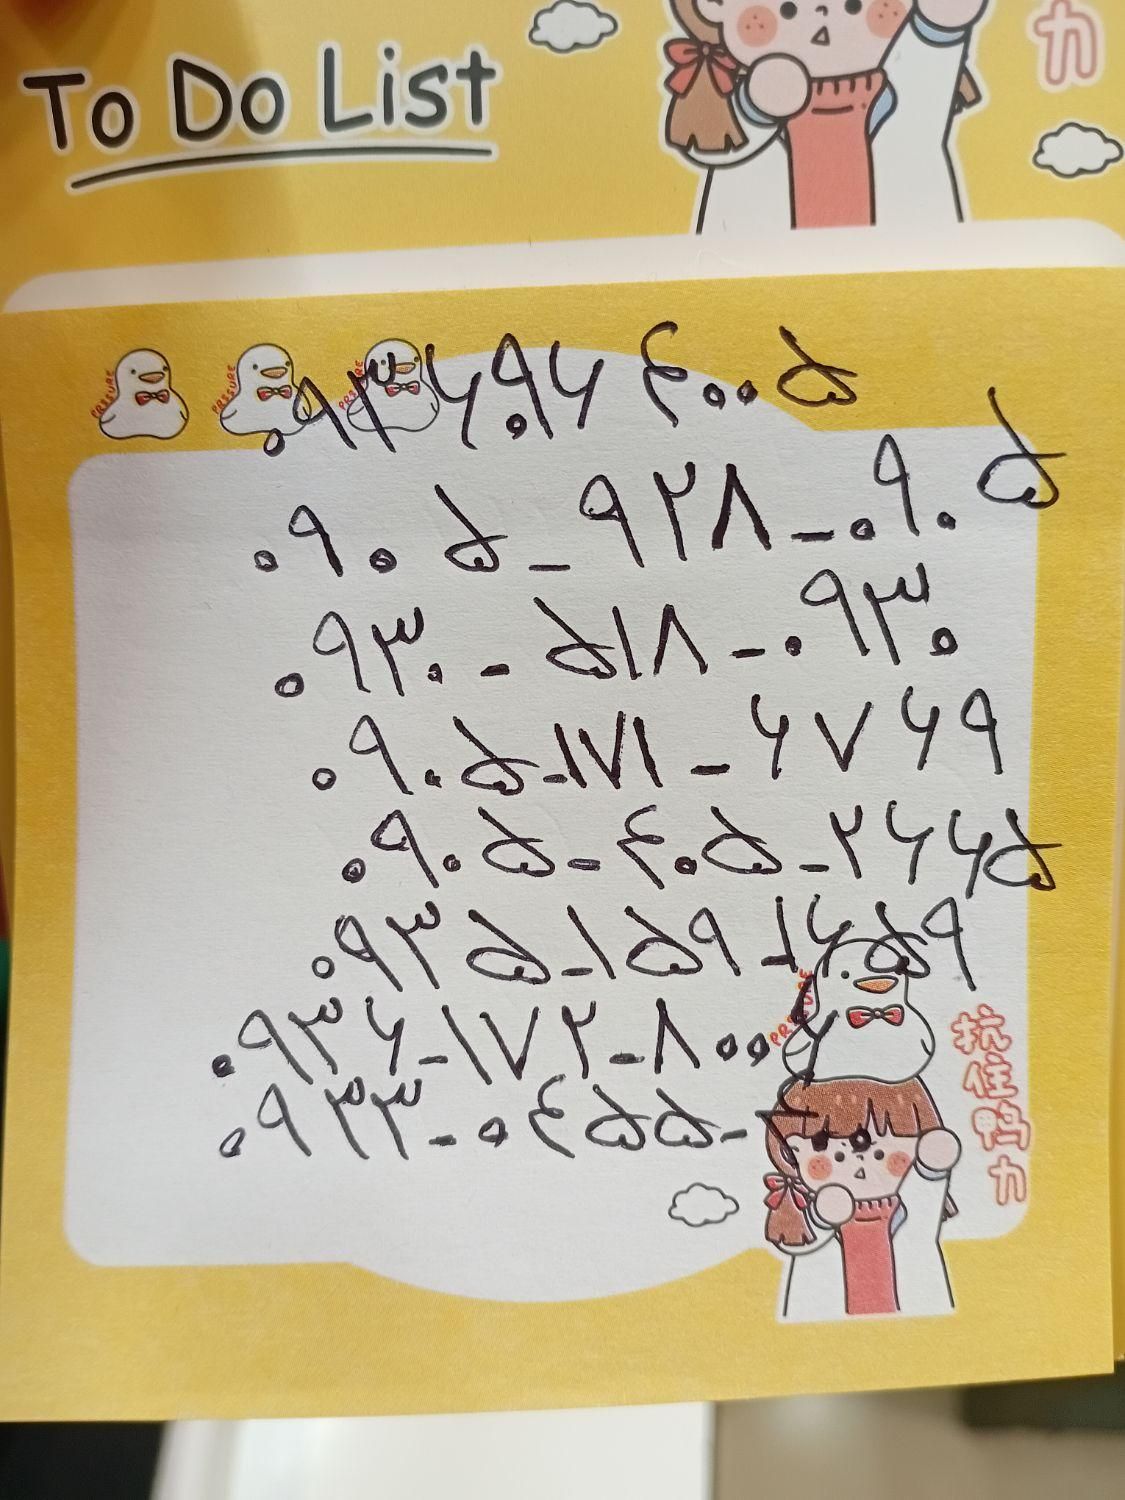 To Do List
力
PRSSURE PRSSURE PRSSURE
۰۹۳۶۹۰۶۴۰۰۵
۰۹۰۵-۹۲۸-۰۹۰۵
۰۹۳۰-۵۱۸-۰۹۳۰
۰۹۰۵-۱۷۱-۶۷۶۹
۰۹۰۵-۴۰۵-۲۶۶۵
۰۹۳۵-۱۵۹-۱۶۵۹
۰۹۳۶-۱۷۲-۸۰۰۶
۰۹۳۳-۰۴۵۵-
PRSSURE
抗住鸭力